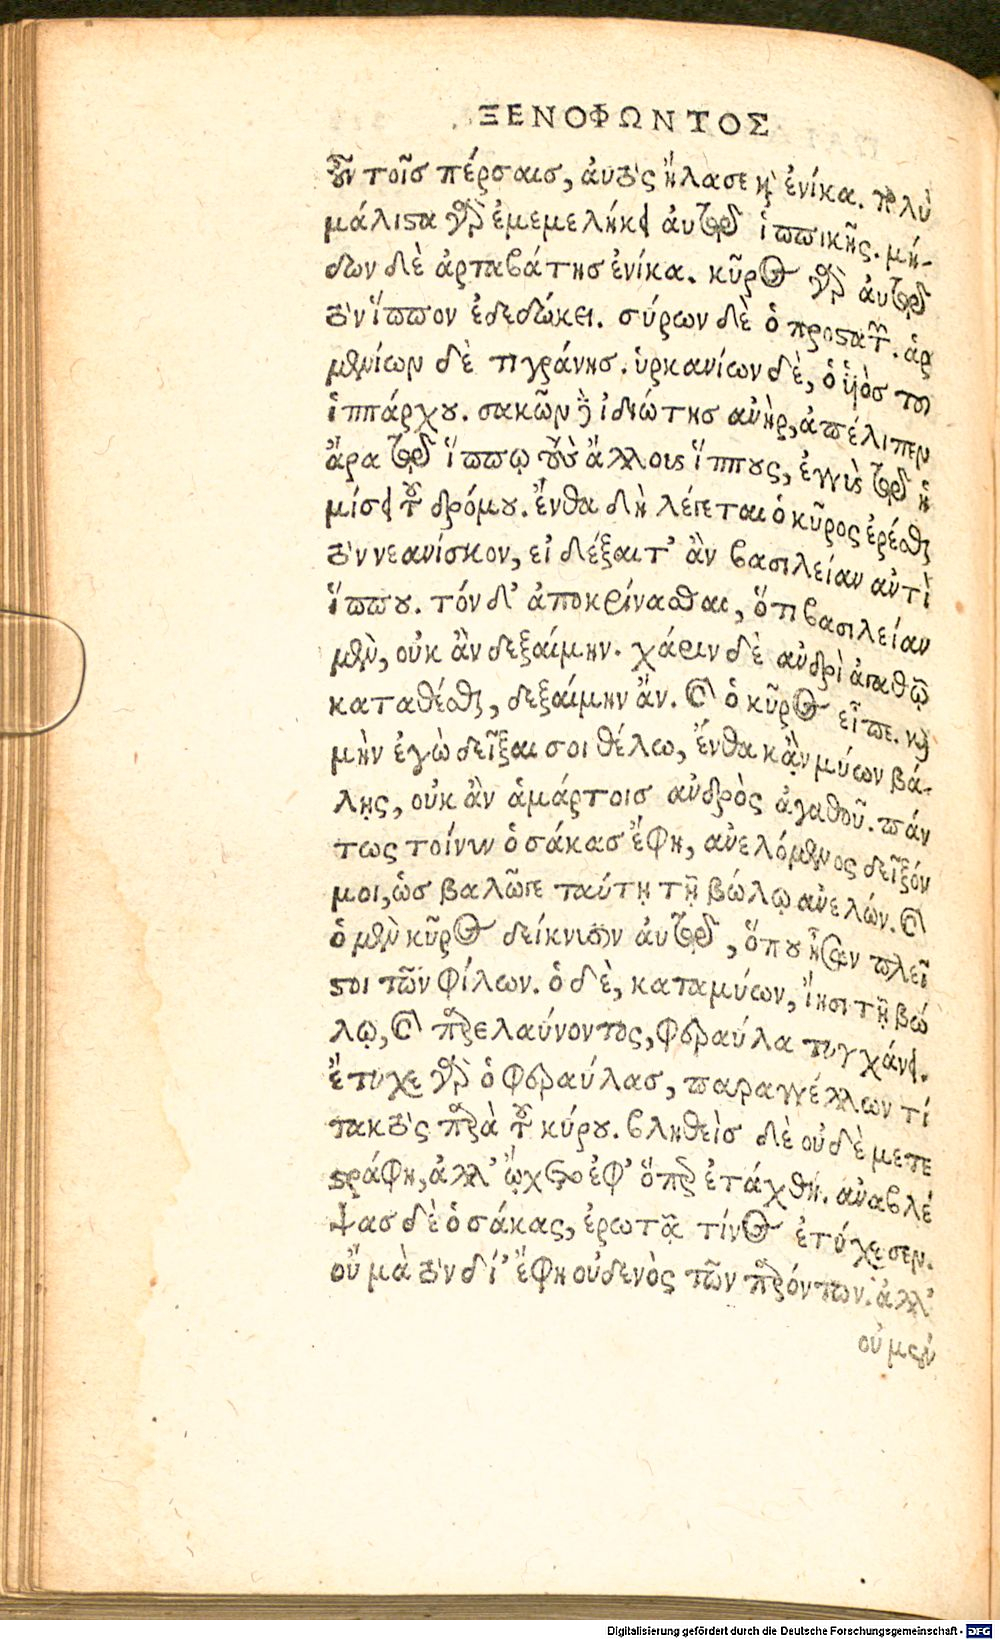 ΞΕΝΟΦΩΝΤΟΣ
σὺν τοῖσ πέρσαισ, αὐτὸς ἤλασε καὶ ἐνίκα. πολὺ
μάλιστα γὰρ ἐμεμελήκει αὐτῷ ἱππικῆς. μή-
δων δὲ ἀρταβάτησ ἐνίκα. κῦρος γὰρ αὐτῷ
τὸν ἵππον ἐδεδώκει. σύρων δὲ ὁ προστατῶν. ἀρ
μενίων δὲ τιγράνησ. ὑρκανίων δὲ, ὁ ὑὸσ του
ἱππάρχου. σακῶν δὲ ἰδιώτησ ἀνὴρ, ἀπέλιπεν
ἄρα τῷ ἵππῳ τοὺς ἄλλους ἵππους, ἐγγὺς τῷ ἡ
μίσει τοῦ δρόμου. ἔνθα δὴ λέγεται ὁ κῦρος ἐρέσθαι
τὸν νεανίσκον, εἰ δέξαιτ’ ἂν βασιλείαν ἀντὶ
ἵππου. τόν δ’ ἀποκρίνασθαι, ὅτι βασιλείαν
μὲν, οὐκ ἂν δεξαίμην. χάριν δὲ ἀνδρὶ ἀγαθῷ
καταθέσθαι, δεξαίμην ἄν. καὶ ὁ κῦρος εἶπε. καὶ
μὴν ἐγὼ δεῖξαι σοι θέλω, ἔνθα κᾂν μύων βά-
λῃς, οὐκ ἂν ἁμάρτοισ ἀνδρὸς ἀγαθοῦ. πάν
τως τοίνυν ὁ σάκασ ἔφη, ἀνελόμενος δεῖξόν
μοι, ὡσ βαλῶγε ταύτῃ τῇ βώλῳ ἀνελών. καὶ
ὁ μὲν κῦρος δείκνυσιν αὐτῷ, ὅπου ἦσαν πλεῖ
στοι τῶν φίλων. ὁ δὲ, καταμύων, ἵησι τῇ βώ
λῳ, καὶ παρελαύνοντος, φεραύλα τυγχάνει.
ἔτυχε γὰρ ὁ φεραύλασ, παραγγέλλων τί
τακτὸς παρὰ τοῦ κύρου. βληθεὶσ δὲ οὐδὲ μετε
στράφη, ἀλλ’ ᾤχετο ἐφ’ ὅπερ ἐτάχθη. ἀναβλέ
ψασ δὲ ὁ σάκας, ἐρωτᾷ τίνος ἐτύχεσεν.
οὔ μὰ τὸν δί’ ἔφη οὐδενὸς τῶν παρόντων. ἀλλ’
οὐ μὲν